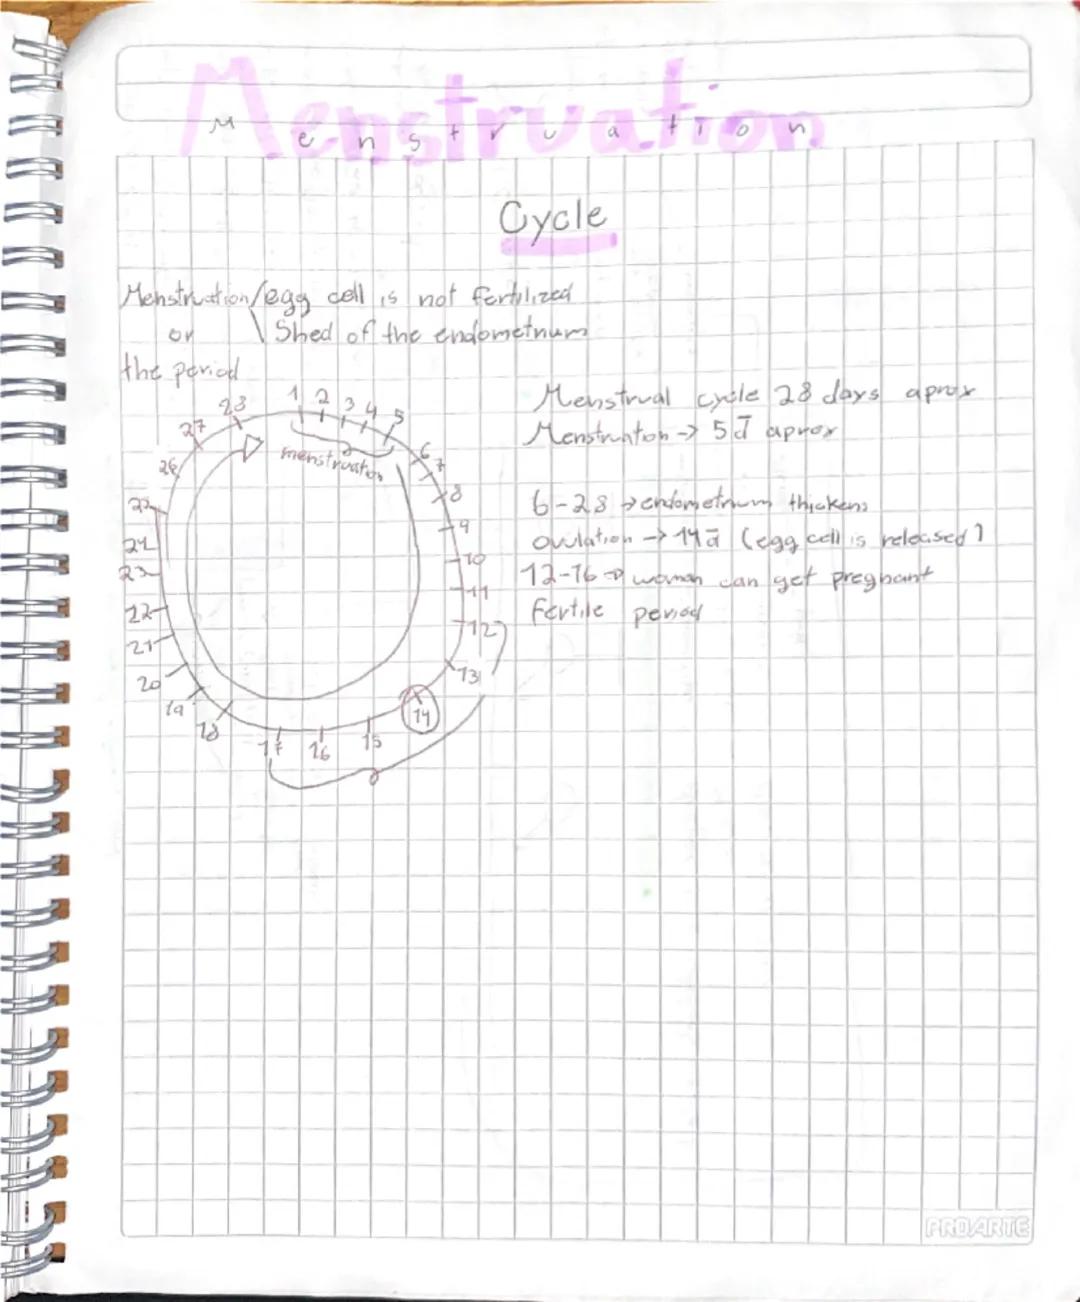 Menstruation
M e n s t r u a t i o n
Cycle
Menstruation/egg cell is not fertilized
or \ Shed of the endometrium
the period
Menstrual cycle 28 days aprox
Menstruation -> 5d aprox
6-28 -> endometrium thickens
ovulation -> 14d (egg cell is released)
12-16 -> woman can get pregnant
fertile period
1 2 3 4 5 6 7 8 9 10 11 12 13 14 15 16 17 18 19 20 21 22 23 24 25 26 27 28
menstruation
PROARTE